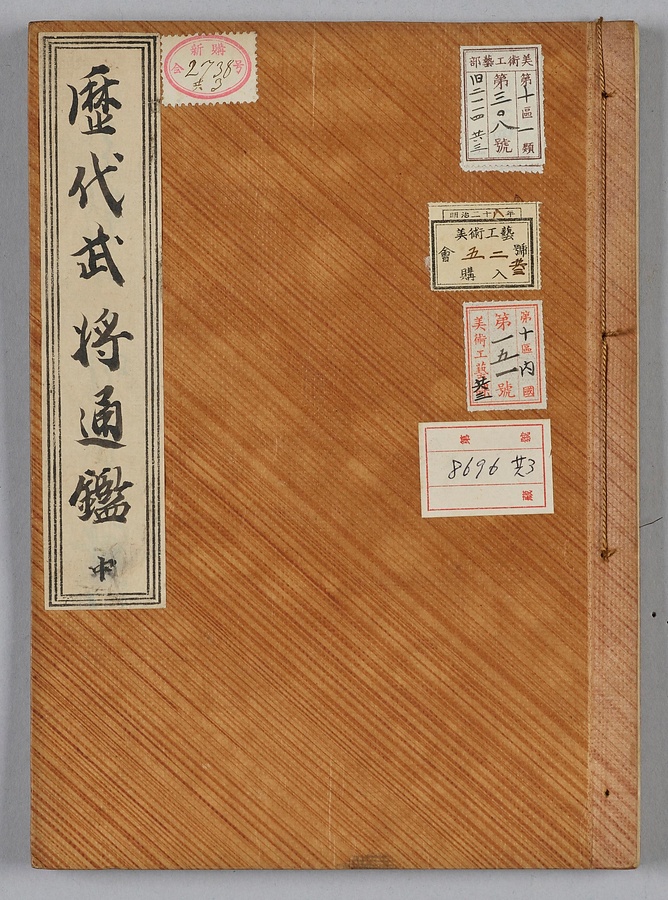 歷代武将通鑑 中
新購
2738号
共3
美術工藝部
第十區一類
第三〇八號
旧二二四 共三
明治二十八年
美術工藝
會五二號 共三
購入
第十區内國
第一五一號
美術工藝部 共三
8696 共3